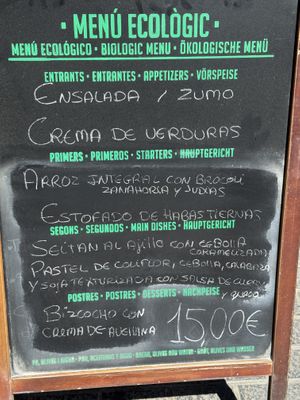 · MENÚ ECOLÒGIC ·
MENÚ ECOLÓGICO · BIOLOGIC MENU · ÖKOLOGISCHE MENÜ
ENTRANTS · ENTRANTES · APPETIZERS · VÖRSPEISE
ENSALADA / ZUMO
CREMA DE VERDURAS
PRIMERS · PRIMEROS · STARTERS · HAUPTGERICHT
ARROZ INTEGRAL CON BROCOLI
ZANAHORIA Y JUDIAS
ESTOFADO DE HABAS TIERNAS
SEGONS · SEGUNDOS · MAIN DISHES · HAUPTGERICHT
SEITAN AL AJILLO CON CEBOLLA
CARAMELIZADA
PASTEL DE COLIFLOR, CEBOLLA, CALABAZA
Y SOJA TEXTURIZADA CON SALSA DE
POSTRES · POSTRES · DESSERTS · NACHPEISE
BIZCOCHO CON
CREMA DE AVELLANA
15,00€
PA, OLIVES I AIGUA · PAN, ACEITUNAS Y AGUA · BREAD, OLIVES AND WATER · BROT, OLIVES UND WASSER